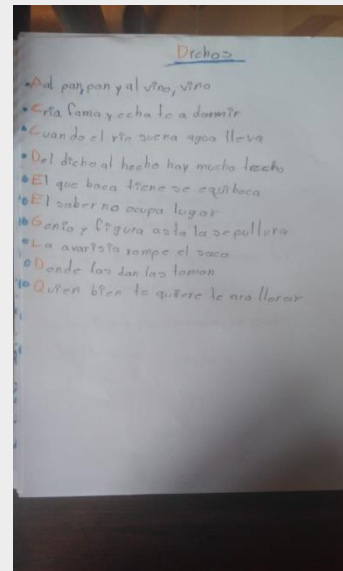 Dichos
• Aal pan, pan y al vino, vino
• Cría fama y echa te a dormir
• Cuando el rio suena agua lleva
• Del dicho al hecho hay mucho trecho
• El que boca tiene se equiboca
• El saber no ocupa lugar
• Genio y figura asta la sepultura
• La avarisia rompe el saco
• Donde las dan las toman
• Quien bien te quiere te ara llorar